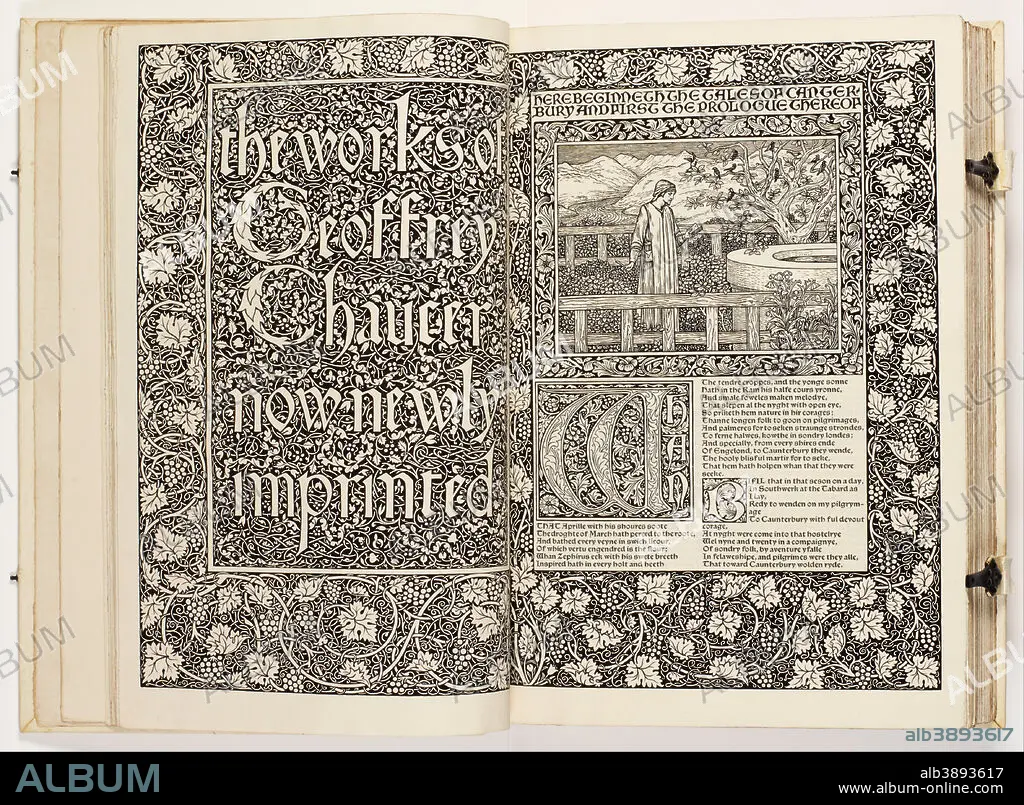 the works of
Geoffrey
Chaucer
now newly
imprinted
HERE BEGINNETH THE TALES OF CANTER-
BURY AND FIRST THE PROLOGUE THEREOF
WHAN
THAT Aprille with his shoures soote
The droghte of March hath perced to the roote,
And bathed every veyne in swich licour,
Of which vertu engendred is the flour;
Whan Zephirus eek with his swete breeth
Inspired hath in every holt and heeth
The tendre croppes, and the yonge sonne
Hath in the Ram his halfe cours yronne,
And smale foweles maken melodye,
That slepen al the nyght with open eye,
So priketh hem nature in hir corages;
Thanne longen folk to goon on pilgrimages,
And palmeres for to seken straunge strondes,
To ferne halwes, kowthe in sondry londes;
And specially, from every shires ende
Of Engelond, to Caunterbury they wende,
The hooly blisful martir for to seke,
That hem hath holpen whan that they were
seeke.
BIFIL that in that seson on a day,
In Southwerk at the Tabard as
I lay,
Redy to wenden on my pilgrym-
age
To Caunterbury with ful devout
corage,
At nyght were come into that hostelrye
Wel nyne and twenty in a compaignye,
Of sondry folk, by aventure yfalle
In felaweshipe, and pilgrimes were they alle,
That toward Caunterbury wolden ryde.
ALBUM
alb3893617
ALBUM
alb3893617
www.album-online.com